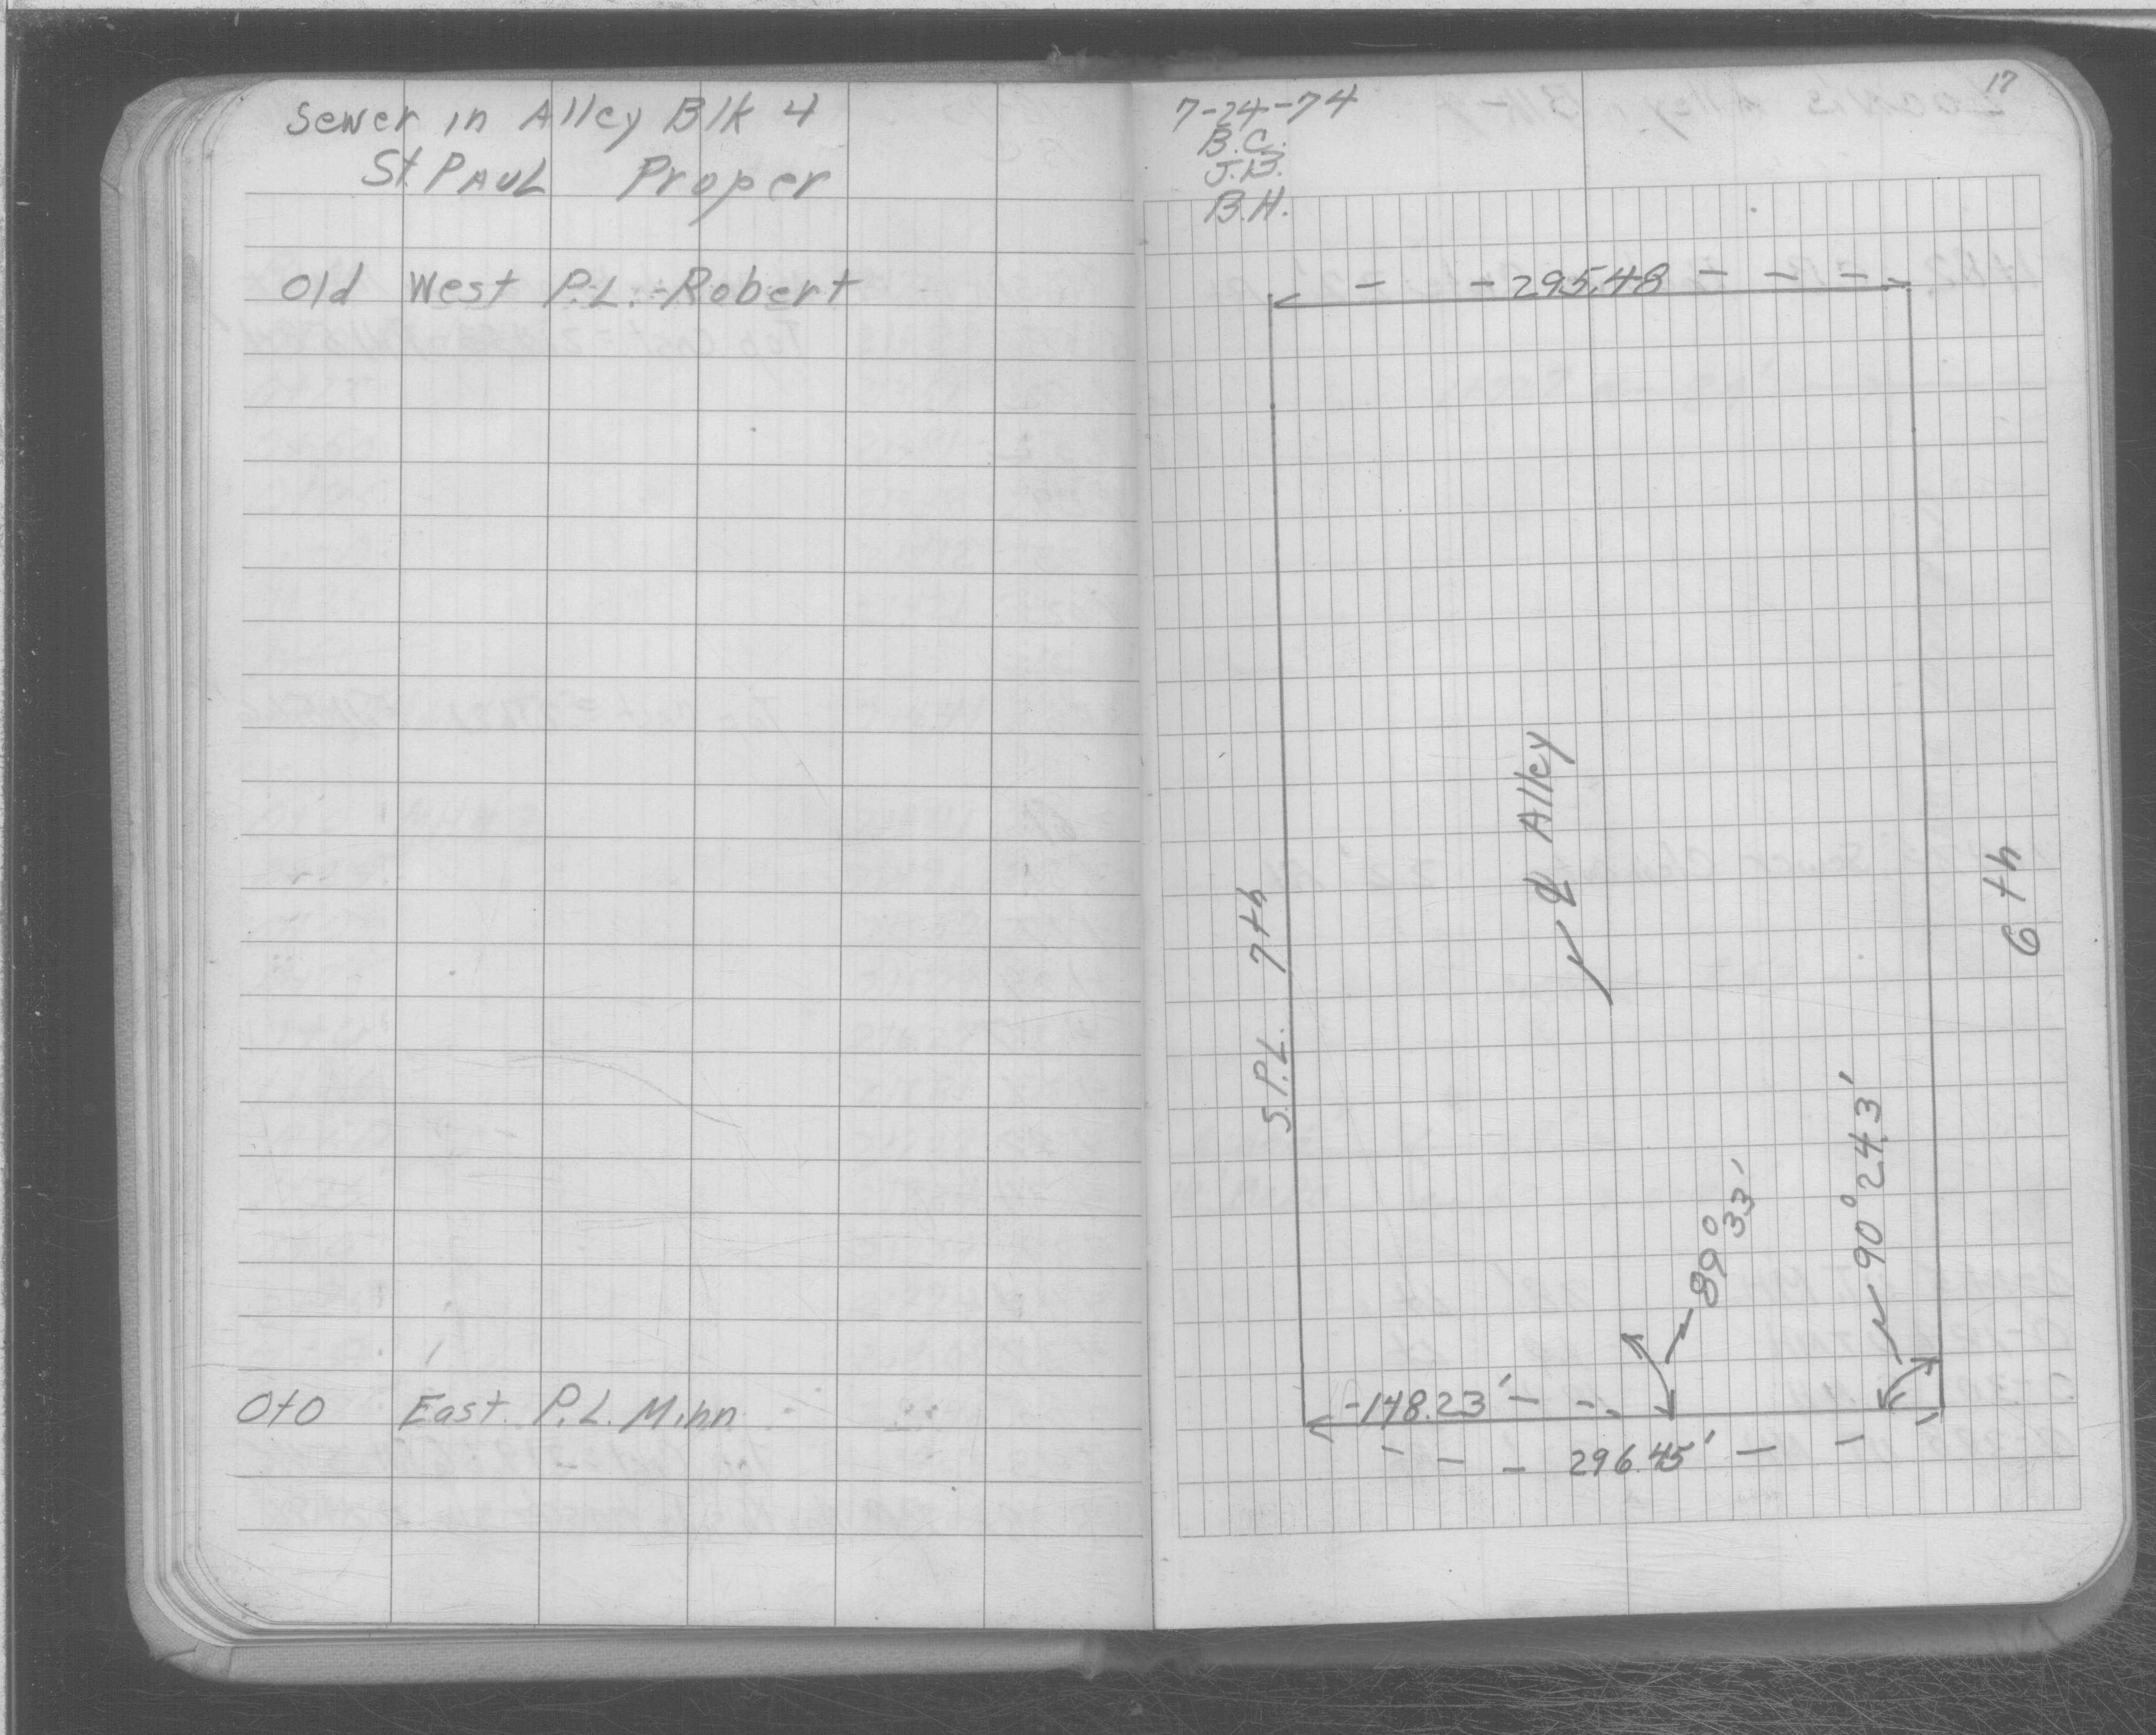 Sewer in Alley Blk 4
St. PAUL Proper
Old West P.L. - Robert
0+0 East P.L. Minn.
17
7-24-74
B.C.
J.B.
B.H.
295.48
℄ Alley
S.P.L. 7th
6th
90° 24.3'
89° 33'
148.23'
296.45'